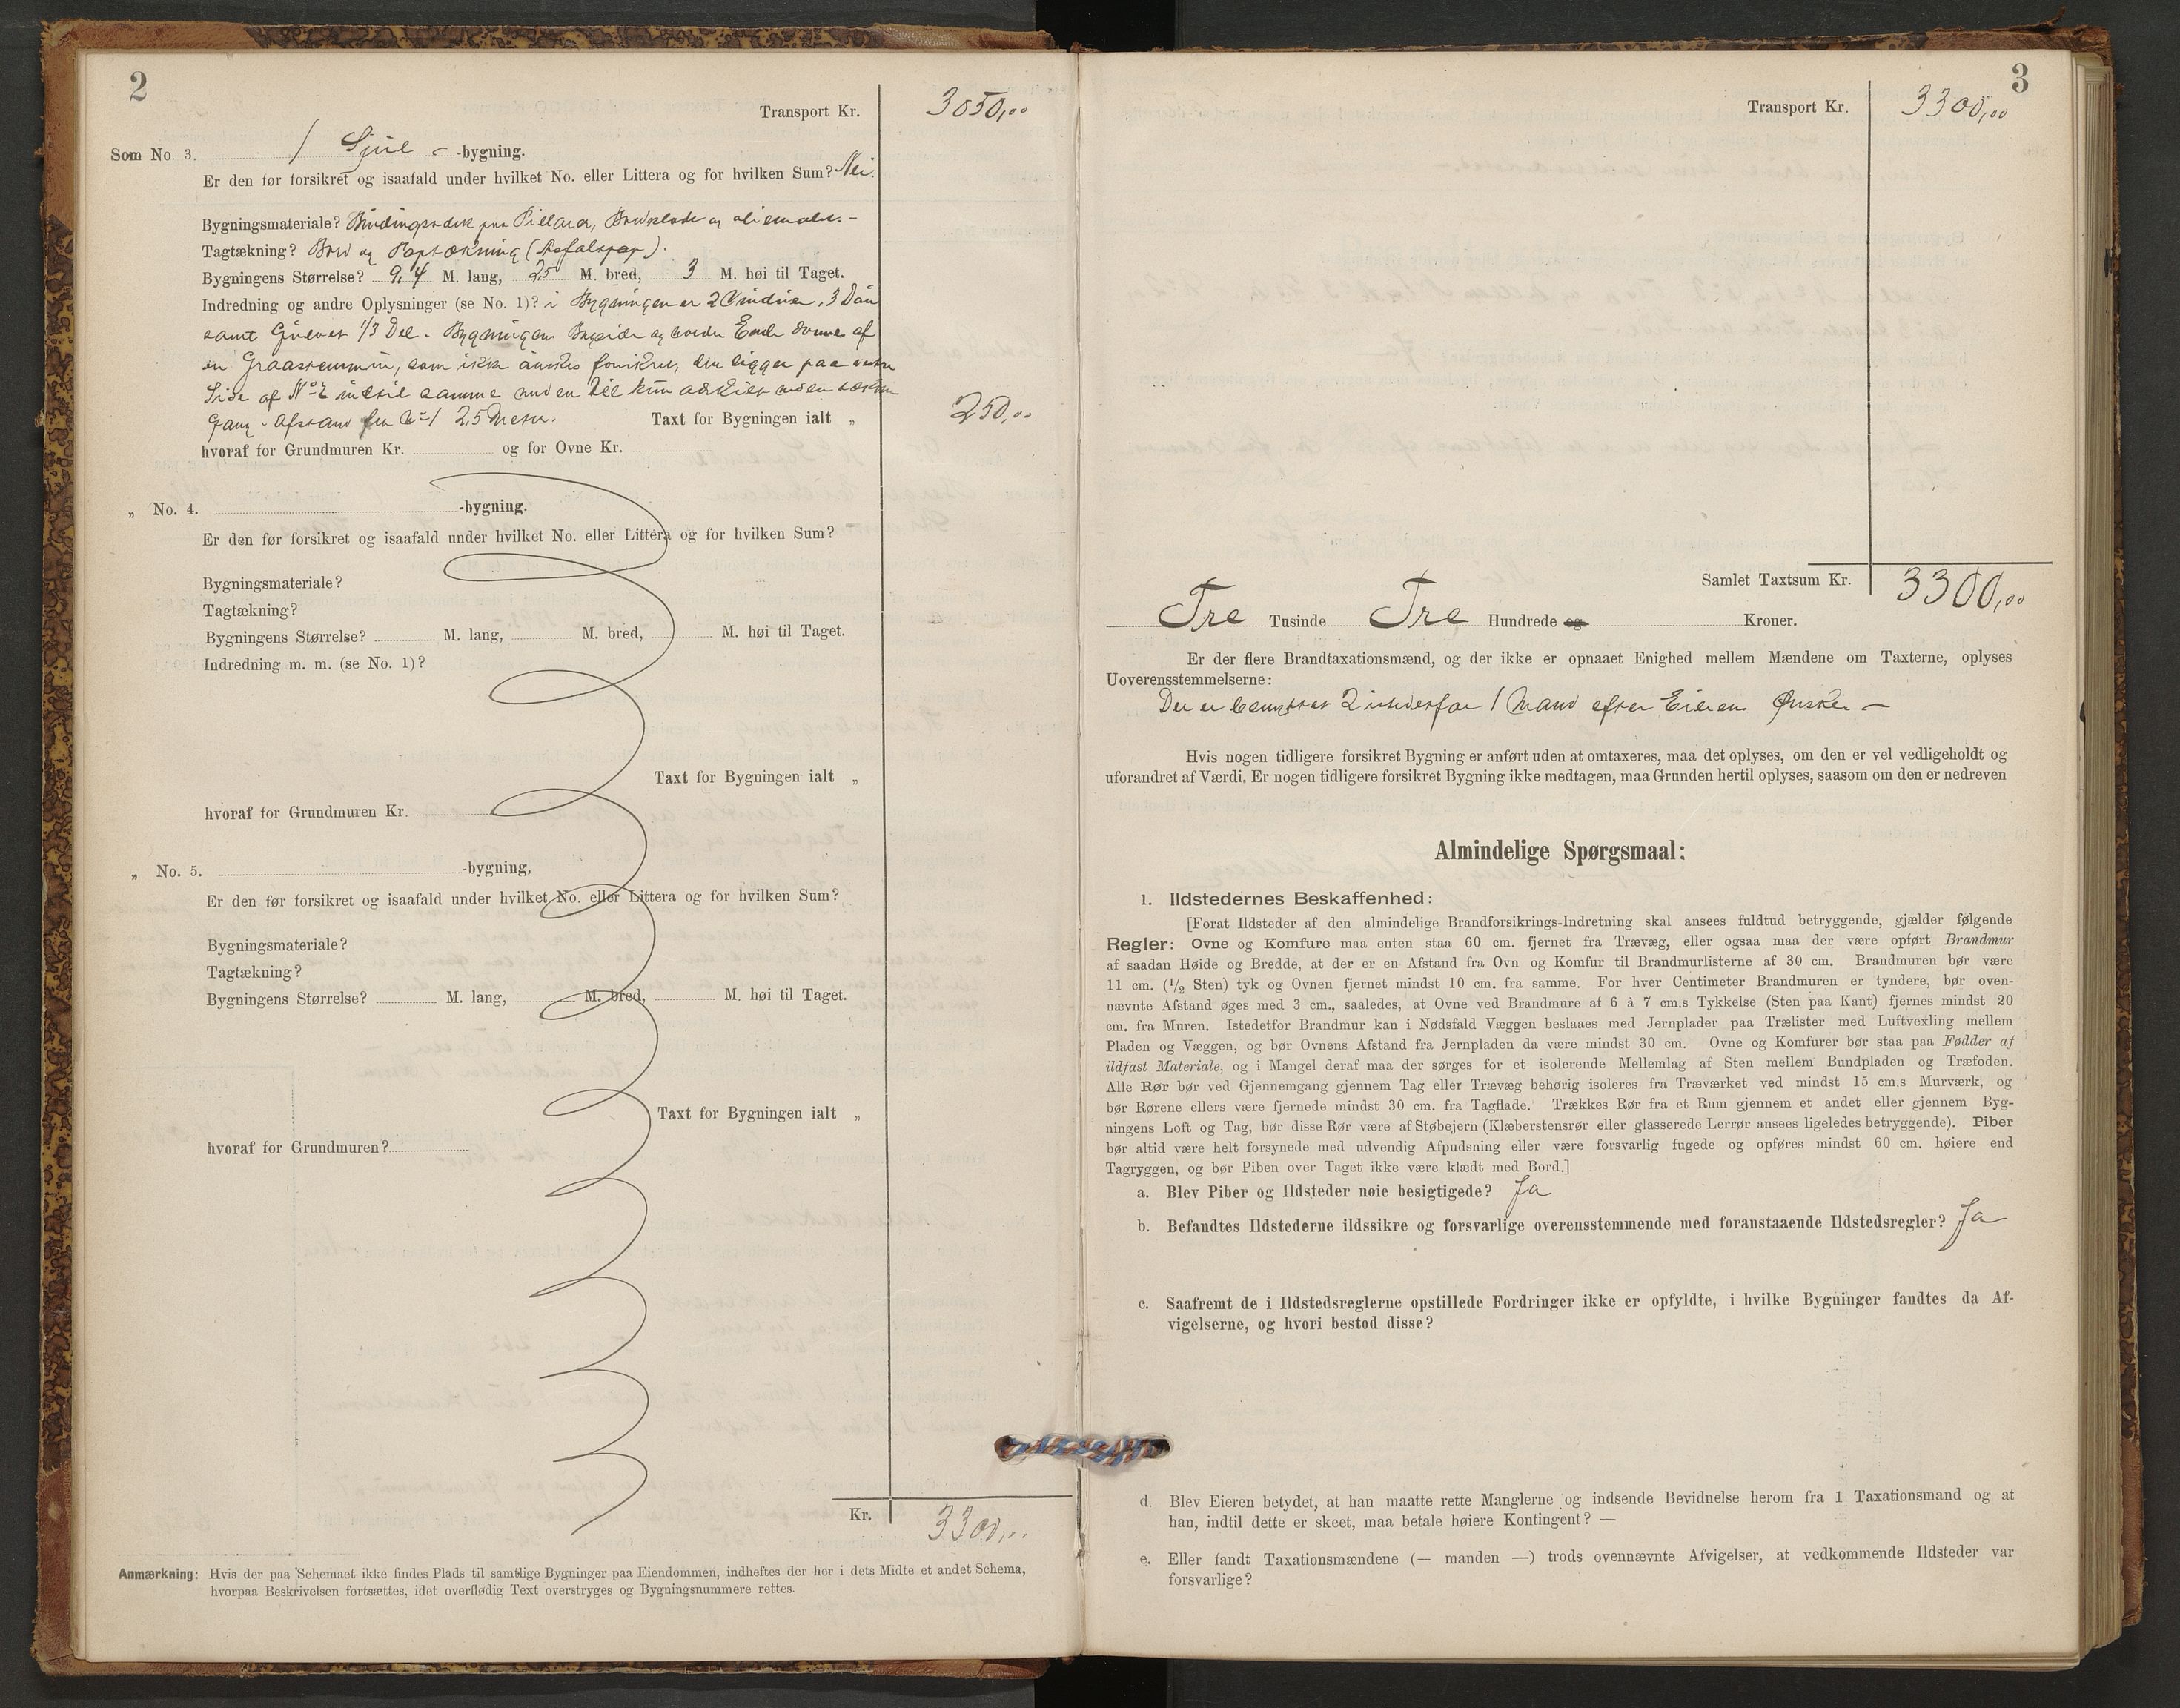 2
Transport Kr. 3050,00
Som No. 3. 1 Sjul -bygning.
Er den før forsikret og isaafald under hvilket No. eller Littera og for hvilken Sum? Nei.
Bygningsmateriale? Bindingsverk paa Pillarer, Bordklædt og oliemalet. -
Tagtækning? Bord og Paptækning (Asfaltpap).
Bygningens Størrelse? 9,4 M. lang, 2,5 M. bred, 3 M. høi til Taget.
Indredning og andre Oplysninger (se No. 1)? i Bygningen er 2 Vinduer, 3 Døre
samt Gulvet 1/3 Del. Bygningens Bagside og Ende dannes af
en Graastensmur, som ikke ønskes forsikret, den ligger paa
Side af No 2 indtil samme
Gang - Afstand fra No 1 2,5 Meter. Taxt for Bygningen ialt „ 250,00
hvoraf for Grundmuren Kr. og for Ovne Kr.
„ No. 4. -bygning.
Er den før forsikret og isaafald under hvilket No. eller Littera og for hvilken Sum?
Bygningsmateriale?
Tagtækning?
Bygningens Størrelse? M. lang, M. bred, M. høi til Taget.
Indredning m. m. (se No. 1)?
Taxt for Bygningen ialt „
hvoraf for Grundmuren Kr.
„ No. 5. -bygning,
Er den før forsikret og isaafald under hvilket No. eller Littera og for hvilken Sum?
Bygningsmateriale?
Tagtækning?
Bygningens Størrelse? M. lang, M. bred, M. høi til Taget.
Taxt for Bygningen ialt „
hvoraf for Grundmuren?
Kr. 3300,00
Anmærkning: Hvis der paa Schemaet ikke findes Plads til samtlige Bygninger paa Eiendommen, indheftes der her i dets Midte et andet Schema,
hvorpaa Beskrivelsen fortsættes, idet overflødig Text overstryges og Bygningsnummere rettes.
3
Transport Kr. 3300,00
Samlet Taxtsum Kr. 3300,00
Tre Tusinde Tre Hundrede og Kroner.
Er der flere Brandtaxationsmænd, og der ikke er opnaaet Enighed mellem Mændene om Taxterne, oplyses
Uoverensstemmelserne:
Der er benyttet 2 istedetfor 1 Mand efter Eierens Ønske -
Hvis nogen tidligere forsikret Bygning er anført uden at omtaxeres, maa det oplyses, om den er vel vedligeholdt og
uforandret af Værdi. Er nogen tidligere forsikret Bygning ikke medtagen, maa Grunden hertil oplyses, saasom om den er nedreven
Almindelige Spørgsmaal:
1. Ildstedernes Beskaffenhed:
[Forat Ildsteder af den almindelige Brandforsikrings-Indretning skal ansees fuldtud betryggende, gjælder følgende
Regler: Ovne og Komfure maa enten staa 60 cm. fjernet fra Trævæg, eller ogsaa maa der være opført Brandmur
af saadan Høide og Bredde, at der er en Afstand fra Ovn og Komfur til Brandmurlisterne af 30 cm. Brandmuren bør være
11 cm. (1/2 Sten) tyk og Ovnen fjernet mindst 10 cm. fra samme. For hver Centimeter Brandmuren er tyndere, bør oven-
nævnte Afstand øges med 3 cm., saaledes, at Ovne ved Brandmure af 6 à 7 cm.s Tykkelse (Sten paa Kant) fjernes mindst 20
cm. fra Muren. Istedetfor Brandmur kan i Nødsfald Væggen beslaaes med Jernplader paa Trælister med Luftvexling mellem
Pladen og Væggen, og bør Ovnens Afstand fra Jernpladen da være mindst 30 cm. Ovne og Komfurer bør staa paa Fødder af
ildfast Materiale, og i Mangel deraf maa der sørges for et isolerende Mellemlag af Sten mellem Bundpladen og Træfoden.
Alle Rør bør ved Gjennemgang gjennem Tag eller Trævæg behørig isoleres fra Træværket ved mindst 15 cm.s Murværk, og
bør Rørene ellers være fjernede mindst 30 cm. fra Tagflade. Trækkes Rør fra et Rum gjennem et andet eller gjennem Byg-
ningens Loft og Tag, bør disse Rør være af Støbejern (Klæberstensrør eller glasserede Lerrør ansees ligeledes betryggende). Piber
bør altid være helt forsynede med udvendig Afpudsning eller være forsvarlig fugede og opføres mindst 60 cm. høiere end
Tagryggen, og bør Piben over Taget ikke være klædt med Bord.]
a. Blev Piber og Ildsteder nøie besigtigede? Ja
b. Befandtes Ildstederne ildssikre og forsvarlige overensstemmende med foranstaaende Ildstedsregler? Ja
c. Saafremt de i Ildstedsreglerne opstillede Fordringer ikke er opfyldte, i hvilke Bygninger fandtes da Af-
vigelserne, og hvori bestod disse?
d. Blev Eieren betydet, at han maatte rette Manglerne og indsende Bevidnelse herom fra 1 Taxationsmand og at
han, indtil dette er skeet, maa betale høiere Kontingent? —
e. Eller fandt Taxationsmændene (— manden —) trods ovennævnte Afvigelser, at vedkommende Ildsteder var
forsvarlige?